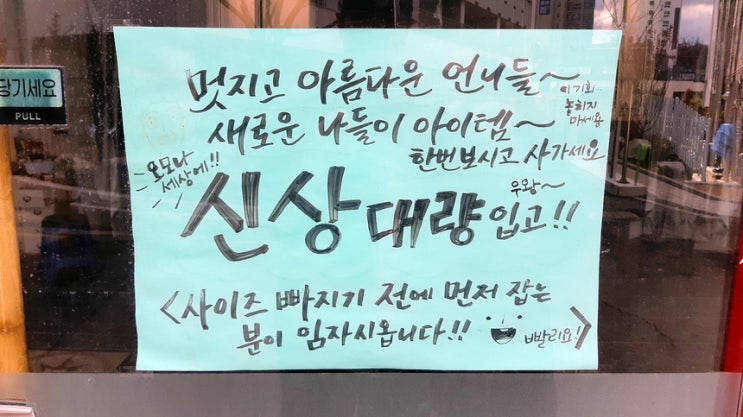 당기세요
PULL
멋지고 아름다운 언니들~
이 기회
놓히지
마세용
새로운 나들이 아이템~
한번보시고 사가세요
오모나
세상에!!
우왕~
신상 대량 입고!!
<사이즈 빠지기 전에 먼저 잡는
분이 임자시옵니다!!
빨리요!>